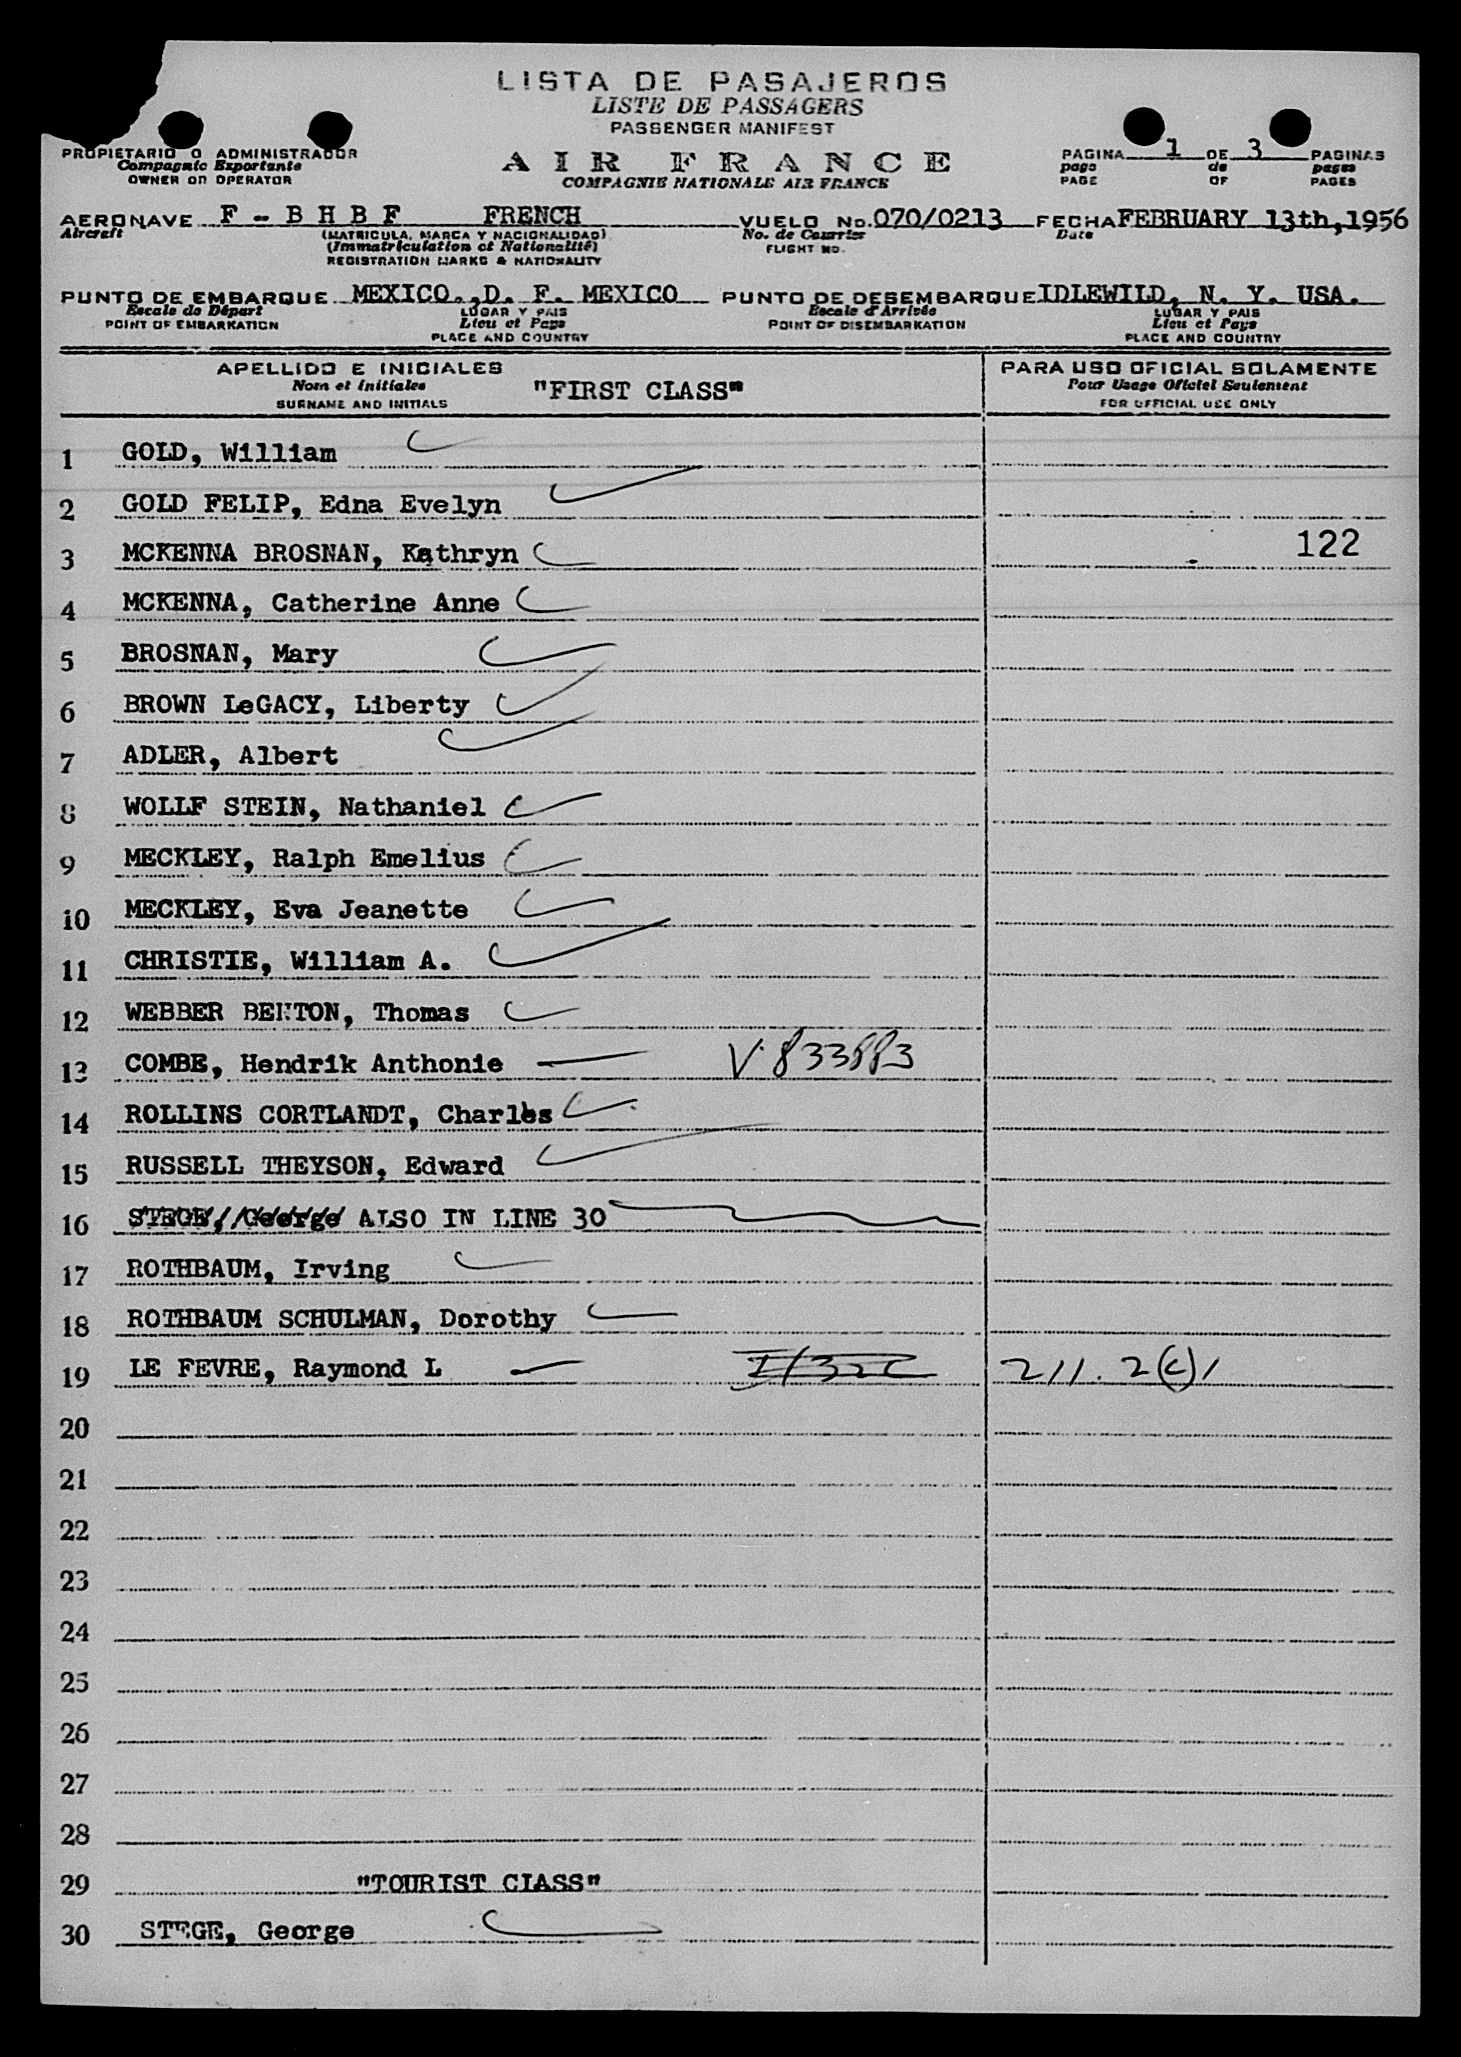 LISTA DE PASAJEROS
LISTE DE PASSAGERS
PASSENGER MANIFEST
PROPIETARIO O ADMINISTRADOR
Compagnie Exportante
OWNER OR OPERATOR
AIR FRANCE
COMPAGNIE NATIONALE AIR FRANCE
PAGINA 1 DE 3 PAGINAS
page de pages
PAGE OF PAGES
AERONAVE F - B H B F FRENCH VUELO No. 070/0213 FECHA FEBRUARY 13th, 1956
Aircraft (MATRICULA, MARCA Y NACIONALIDAD) No. de Courrier Date
(Immatriculation et Nationalité) FLIGHT NO.
REGISTRATION MARKS & NATIONALITY
PUNTO DE EMBARQUE MEXICO., D. F. MEXICO PUNTO DE DESEMBARQUE IDLEWILD, N. Y. USA.
Escale de Départ LUGAR Y PAIS Escale d'Arrivée LUGAR Y PAIS
POINT OF EMBARKATION Lieu et Pays POINT OF DISEMBARKATION Lieu et Pays
PLACE AND COUNTRY PLACE AND COUNTRY
APELLIDO E INICIALES PARA USO OFICIAL SOLAMENTE
Nom et Initiales "FIRST CLASS" Pour Usage Officiel Seulement
SURNAME AND INITIALS FOR OFFICIAL USE ONLY
1 GOLD, William
2 GOLD FELIP, Edna Evelyn
3 MCKENNA BROSNAN, Kathryn 122
4 MCKENNA, Catherine Anne
5 BROSNAN, Mary
6 BROWN LeGACY, Liberty
7 ADLER, Albert
8 WOLLF STEIN, Nathaniel
9 MECKLEY, Ralph Emelius
10 MECKLEY, Eva Jeanette
11 CHRISTIE, William A.
12 WEBBER BENTON, Thomas
13 COMBE, Hendrik Anthonie V. 833883
14 ROLLINS CORTLANDT, Charles
15 RUSSELL THEYSON, Edward
16 STEGE, George ALSO IN LINE 30
17 ROTHBAUM, Irving
18 ROTHBAUM SCHULMAN, Dorothy
19 LE FEVRE, Raymond L 211. 2(c)1
20
21
22
23
24
25
26
27
28
29 "TOURIST CLASS"
30 STEGE, George